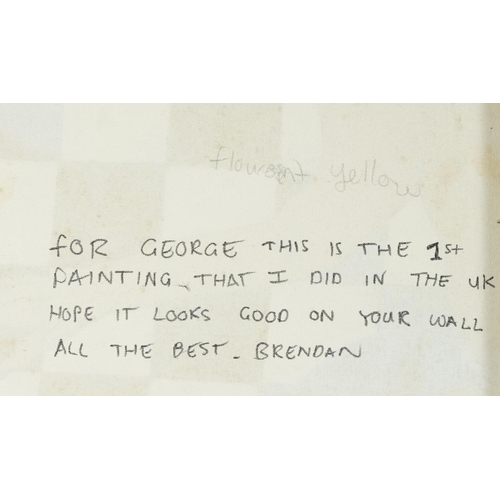 yellow
FOR GEORGE THIS IS THE 1st
PAINTING THAT I DID IN THE UK
HOPE IT LOOKS GOOD ON YOUR WALL
ALL THE BEST. BRENDAN